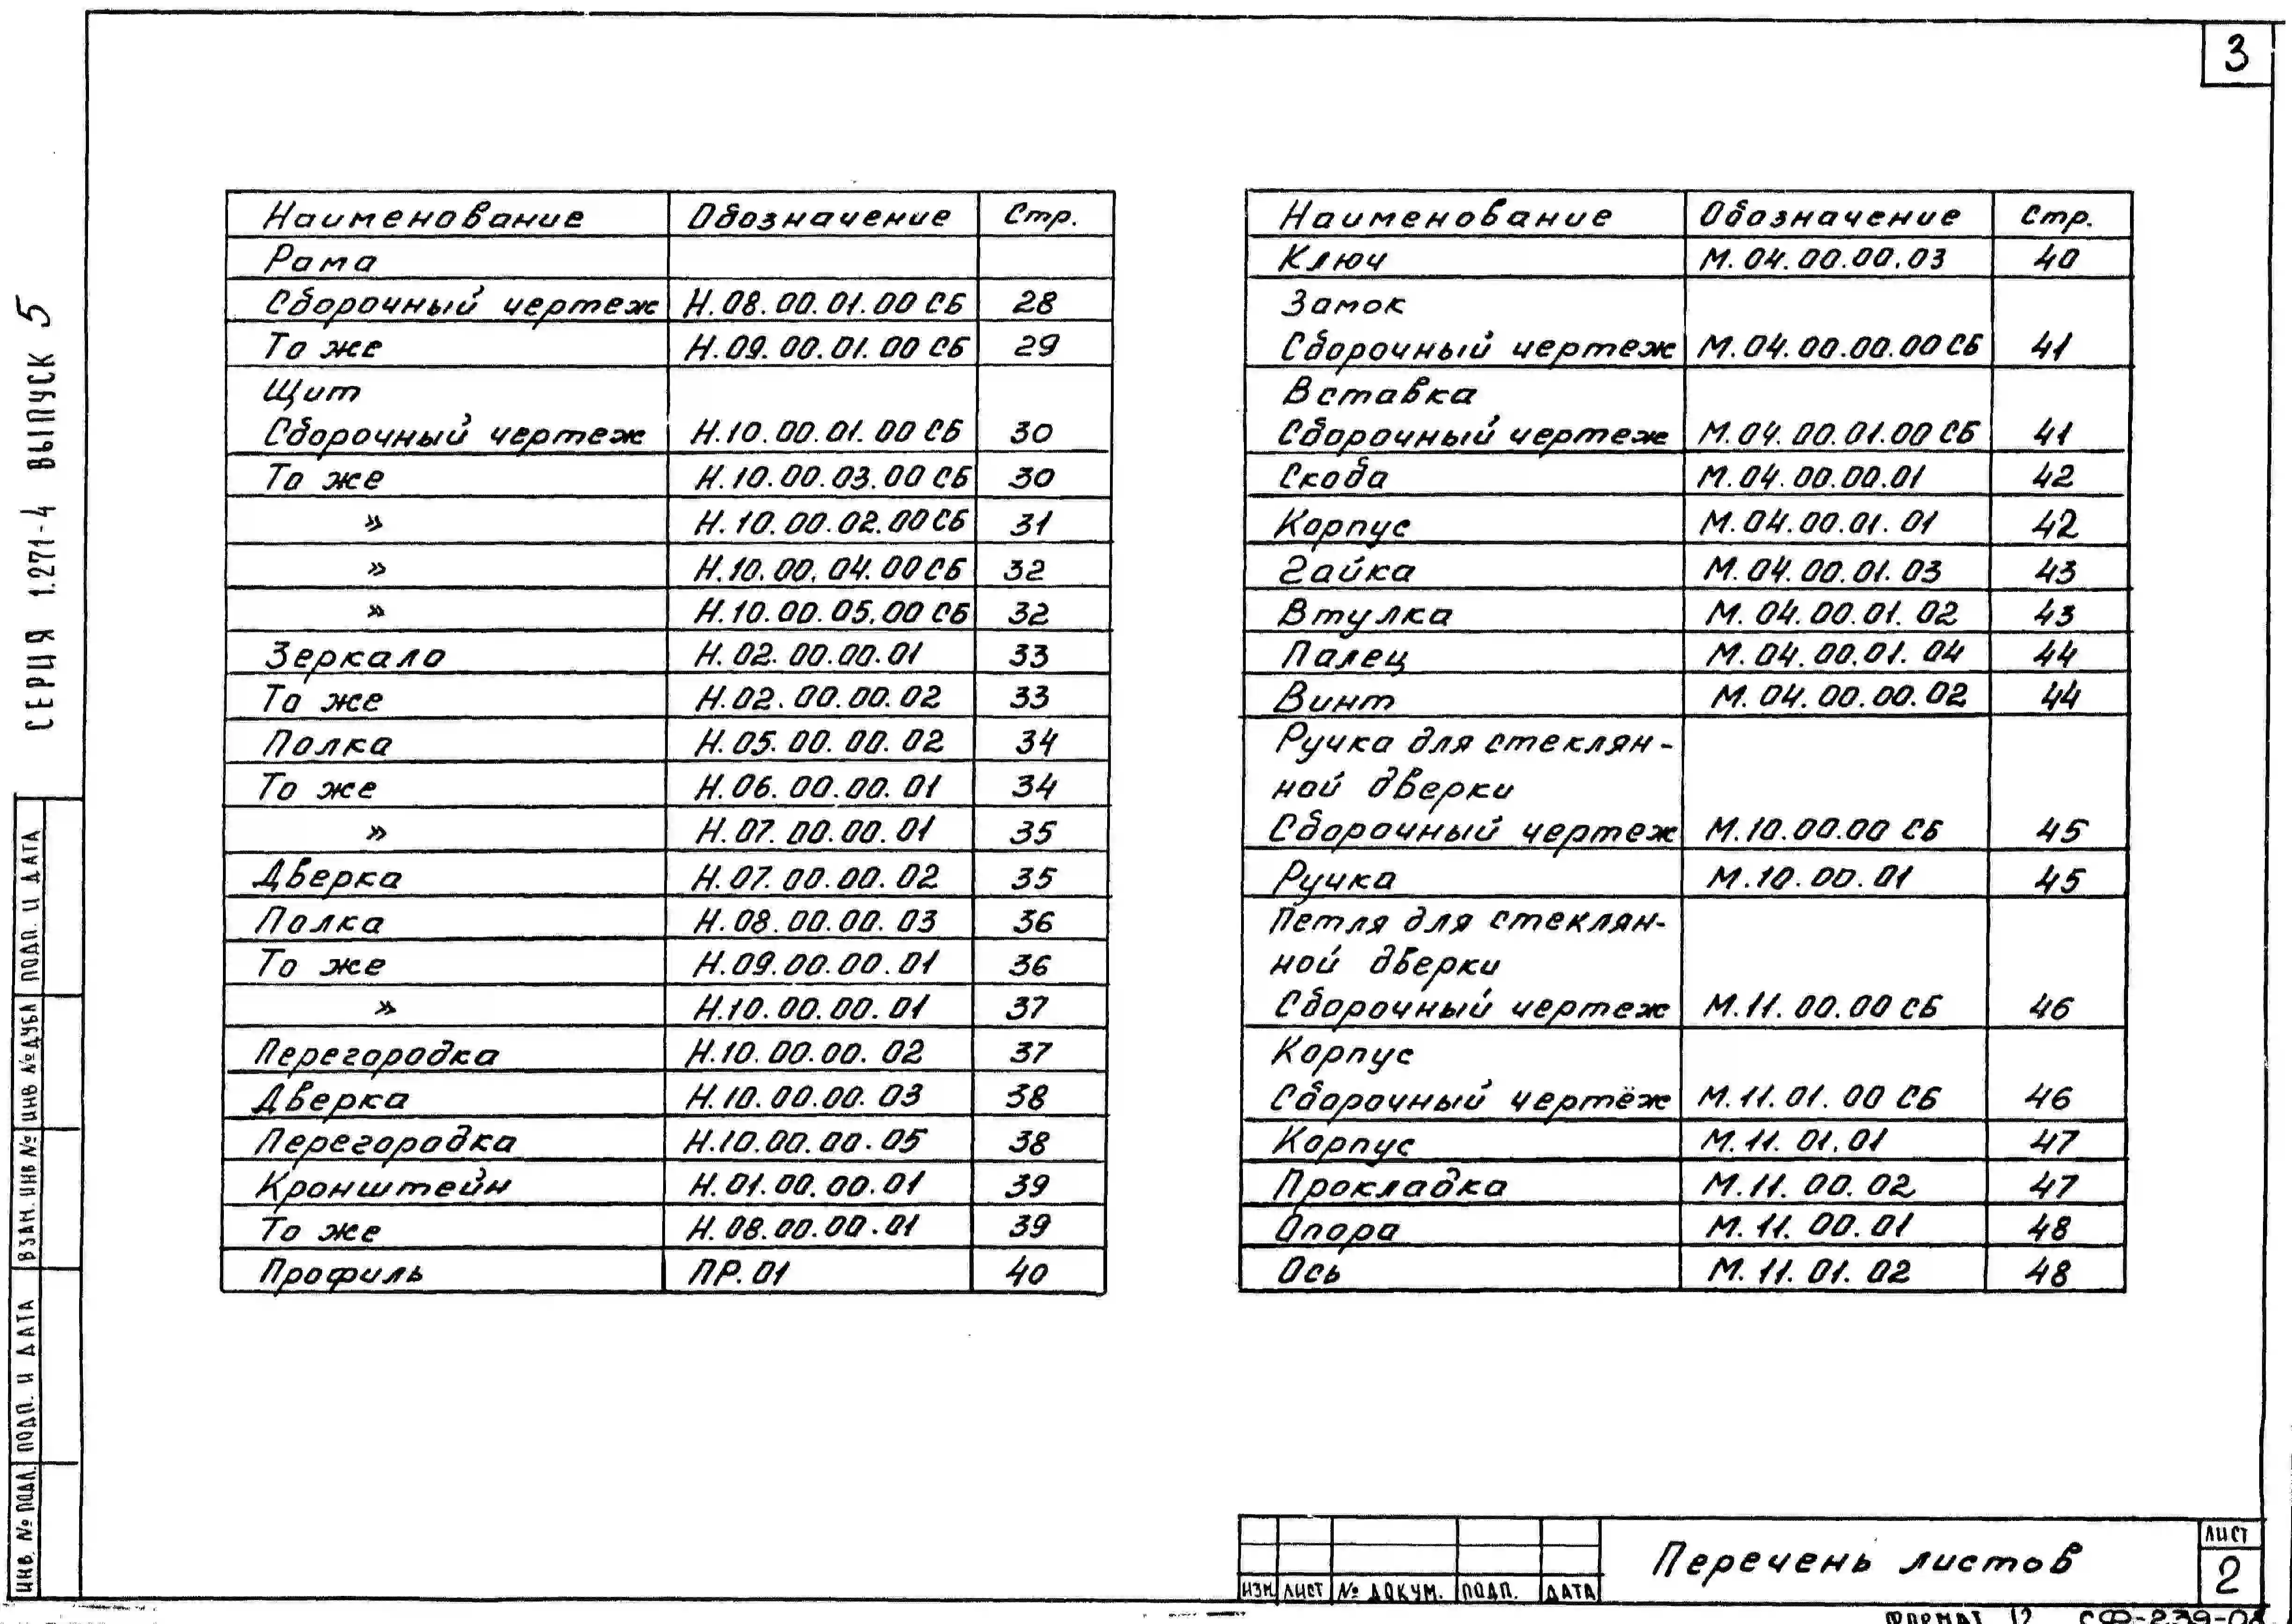 3
СЕРИЯ 1.271-4 ВЫПУСК 5
Наименование Обозначение Стр.
Рама
Сборочный чертеж Н.08.00.01.00 СБ 28
То же Н.09.00.01.00 СБ 29
Щит
Сборочный чертеж Н.10.00.01.00 СБ 30
То же Н.10.00.03.00 СБ 30
» Н.10.00.02.00 СБ 31
» Н.10.00.04.00 СБ 32
» Н.10.00.05.00 СБ 32
Зеркало Н.02.00.00.01 33
То же Н.02.00.00.02 33
Полка Н.05.00.00.02 34
То же Н.06.00.00.01 34
» Н.07.00.00.01 35
Дверка Н.07.00.00.02 35
Полка Н.08.00.00.03 36
То же Н.09.00.00.01 36
» Н.10.00.00.01 37
Перегородка Н.10.00.00.02 37
Дверка Н.10.00.00.03 38
Перегородка Н.10.00.00.05 38
Кронштейн Н.01.00.00.01 39
То же Н.08.00.00.01 39
Профиль ПР.01 40
Наименование Обозначение Стр.
Ключ М.04.00.00.03 40
Замок
Сборочный чертеж М.04.00.00.00 СБ 41
Вставка
Сборочный чертеж М.04.00.01.00 СБ 41
Скоба М.04.00.00.01 42
Корпус М.04.00.01.01 42
Гайка М.04.00.01.03 43
Втулка М.04.00.01.02 43
Палец М.04.00.01.04 44
Винт М.04.00.00.02 44
Ручка для стеклян-
ной дверки
Сборочный чертеж М.10.00.00 СБ 45
Ручка М.10.00.01 45
Петля для стеклян-
ной дверки
Сборочный чертеж М.11.00.00 СБ 46
Корпус
Сборочный чертёж М.11.01.00 СБ 46
Корпус М.11.01.01 47
Прокладка М.11.00.02 47
Опора М.11.00.01 48
Ось М.11.01.02 48
ИНВ. № ПОДЛ. ПОДП. И ДАТА ВЗАМ. ИНВ № ИНВ № ДУБЛ ПОДП. И ДАТА
ИЗМ ЛИСТ № ДОКУМ. ПОДП. ДАТА
Перечень листов
ЛИСТ
2
ФОРМАТ 12